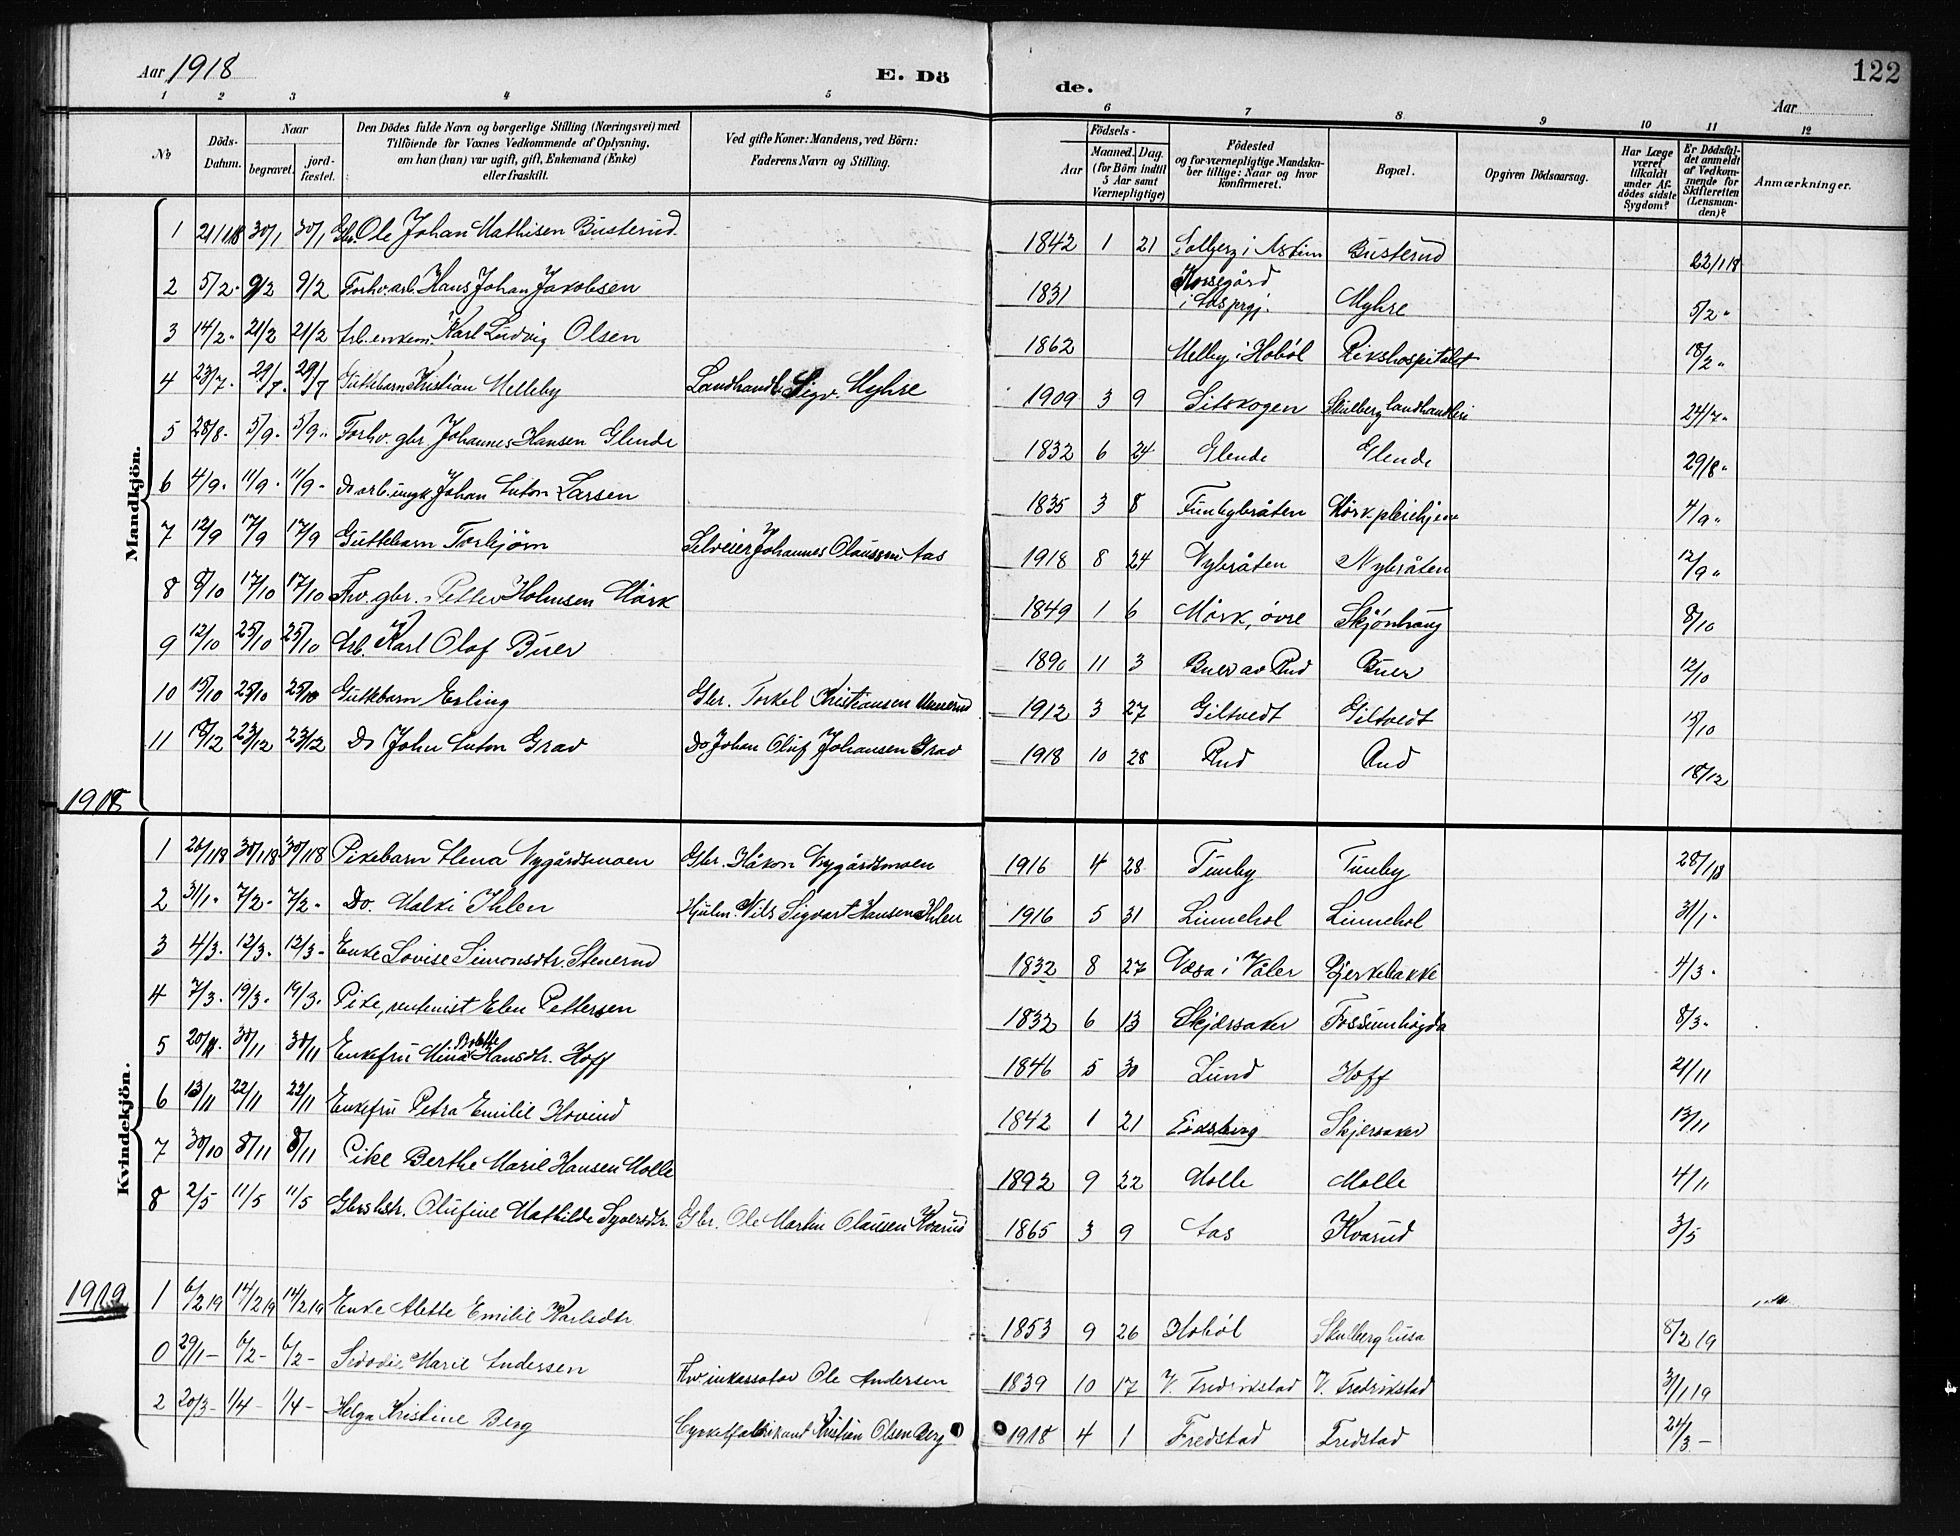 Aar 1918
E. Dö
de.
122
Aar
1 2 3 4 5 6 7 8 9 10 11 12
No
Döds-Datum.
Naar
begravet.
jord-fæstet.
Den Dödes fulde Navn og borgerlige Stilling (Næringsvei) med
Tilföiende for Voxnes Vedkommende af Oplysning,
om han (hun) var ugift, gift, Enkemand (Enke)
eller fraskilt.
Ved gifte Koner: Mandens, ved Börn:
Faderens Navn og Stilling.
Födsels-
Aar
Maaned. Dag.
(for Börn indtil
5 Aar samt
Værnepligtige)
Födested
og for værnepligtige Mandska-
ber tillige: Naar og hvor
konfirmeret.
Bopæl.
Opgiven Dödsaarsag.
Har Læge
været
tilkaldt
under Af-
dödes sidste
Sygdom?
Er Dödsfal-
det anmeldt
af Vedkom-
mende for
Skifteretten
(Lensman-
den)?
Anmærkninger.
Mandkjön.
1 21/1 18 30/1 30/1 Gbr. Ole Johan Mathisen Busterud 1842 1 21 Solberg i Askim Busterud 22/1 18
2 5/2 9/2 9/2 Forhv. arb. Hans Johan Jakobsen 1831 Korsegård i Aas prgj. Myhre 5/2 "
3 14/2 21/2 21/2 Arb. enkem. Karl Ludvig Olsen 1862 Melby i Hobøl Rikshospitalet 18/2 "
4 23/7 29/7 29/7 Guttebarn Kristian Melleby Landhandl. Sigv. Myhre 1909 3 9 Sitskogen Skulberg landhandleri 24/7
5 28/8 5/9 5/9 Forhv. gbr. Johannes Hansen Glende 1832 6 24 Glende Glende 29/8 "
6 4/9 11/9 11/9 Do arb. ungk. Johan Anton Larsen 1835 3 8 Mörk pleiehjem 4/9 "
7 12/9 17/9 17/9 Guttebarn Torbjörn Selveier Johannes Olaussen Aas 1918 8 24 Nybråten Nybråten 12/9 "
8 8/10 17/10 17/10 Fhv. gbr. Petter Holmsen Mörk 1849 1 6 Mörk, övre Skjönhaug 8/10
9 12/10 25/10 25/10 Arb. Karl Olaf Buer 1890 11 3 Buer av Rud Buer 12/10
10 15/10 25/10 25/10 Guttebarn Erling Gbr. Torkel Kristiansen 1912 3 27 Giltvedt Giltvedt 15/10
11 18/12 23/12 23/12 Do John Anton Grav Do Johan Oluf Johansen Grav 1918 10 28 Rud Rud 18/12
1918
Kvindekjön.
1 26/1 18 30/1 18 30/1 18 Pikebarn Alena Nygårdsmoen Gbr. Håkon Nygårdsmoen 1916 4 28 Tunby Tunby 28/1 18
2 31/1 7/2 7/2 Do. Ihlen Hjulm. Nils Sigvart Hansen Ihlen 1916 5 31 Linnehol Linnehol 31/1
3 4/3 12/3 12/3 Enke Lovise Simonsdtr. Stenerud 1832 8 27 i Våler Bjerkebakke 4/3
4 7/3 19/3 19/3 Pike, rentenist Elen Pettersen 1832 6 13 Skjersaker Fossumhögda 8/3
5 20/11 30/11 30/11 Enkefru Mina Bolette Hansdtr. Hoff 1846 5 30 Lund Hoff 21/11
6 13/11 22/11 22/11 Enkefru Petra Emilie Hovind 1842 1 21 Eidsberg Skjersaker 13/11
7 30/10 8/11 8/11 Pike Berthe Marie Hansen Molle 1892 9 22 Molle Molle 4/11
8 2/5 11/5 11/5 Gbrshstr. Olufine Mathilde Syversdtr. Gbr. Ole Martin Olausen Kvarud 1865 3 9 Aas Kvarud 3/5
1919
1 6/2 19 14/2 19 14/2 19 Enke Alette Emilie Karlsdtr 1853 9 26 Hobøl Skulberghusa 8/2 19
0 29/1 6/2 6/2 Marie Andersen Fhv inkassator Ole Andersen 1839 10 17 V. Fredrikstad V. Fredrikstad 3/1 19
2 20/3 1/4 1/4 Helga Kristine Berg Kristian Olsen Berg 1918 4 1 Fredstad Fredstad 24/3